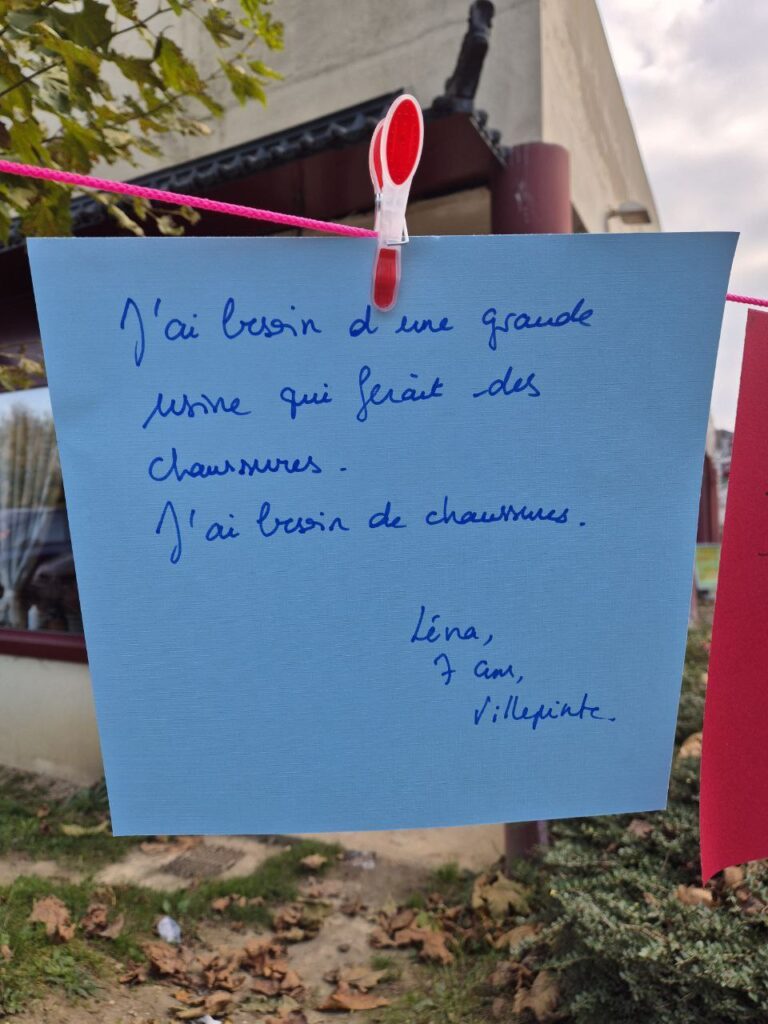 J'ai besoin d'une grande
usine qui ferait des
chaussures.
J'ai besoin de chaussures.
Léna,
7 ans,
Villepinte.